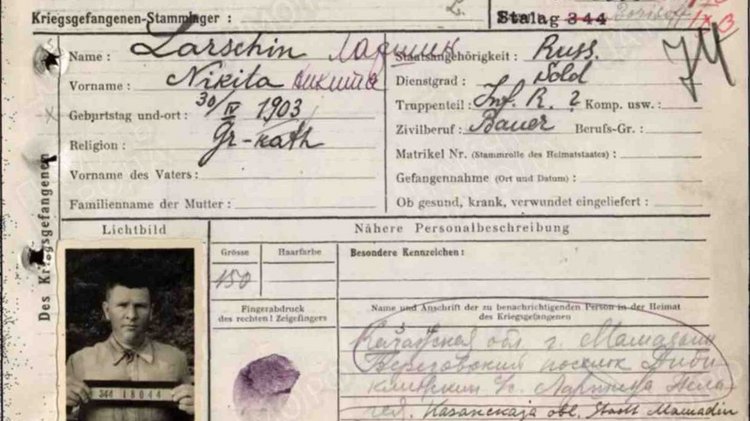 Kriegsgefangenen-Stammlager :
Stalag 344
Des Kriegsgefangenen
Name : Larschin Ларшин
Vorname : Nikita Никита
Geburtstag und-ort : 30/IV 1903
Religion : Gr-kath
Vorname des Vaters :
Familienname der Mutter :
Staatsangehörigkeit : Russ.
Dienstgrad : Sold
Truppenteil : Inf. R. ? Komp. usw. :
Zivilberuf : Bauer Berufs-Gr. :
Matrikel Nr. (Stammrolle des Heimatstaates) :
Gefangennahme (Ort und Datum) :
Ob gesund, krank, verwundet eingeliefert :
Lichtbild
Nähere Personalbeschreibung
Grösse
Haarfarbe
Besondere Kennzeichen :
150
Fingerabdruck
des rechten! Zeigefingers
Name und Anschrift der zu benachrichtigenden Person in der Heimat
des Kriegsgefangenen
обл. г.
поселок
Kasanskaja obl. Stadt Mamadin
344 18044